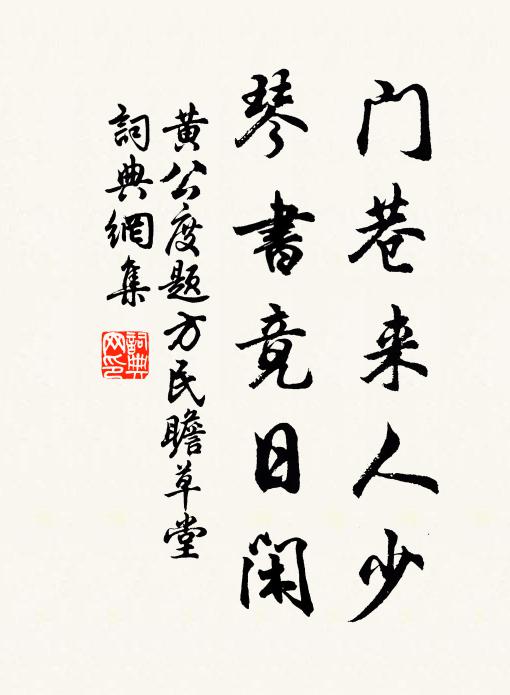 门巷来人少
琴書竟日閑
黄公度题方民瞻草堂
詞典網集
詞典网印